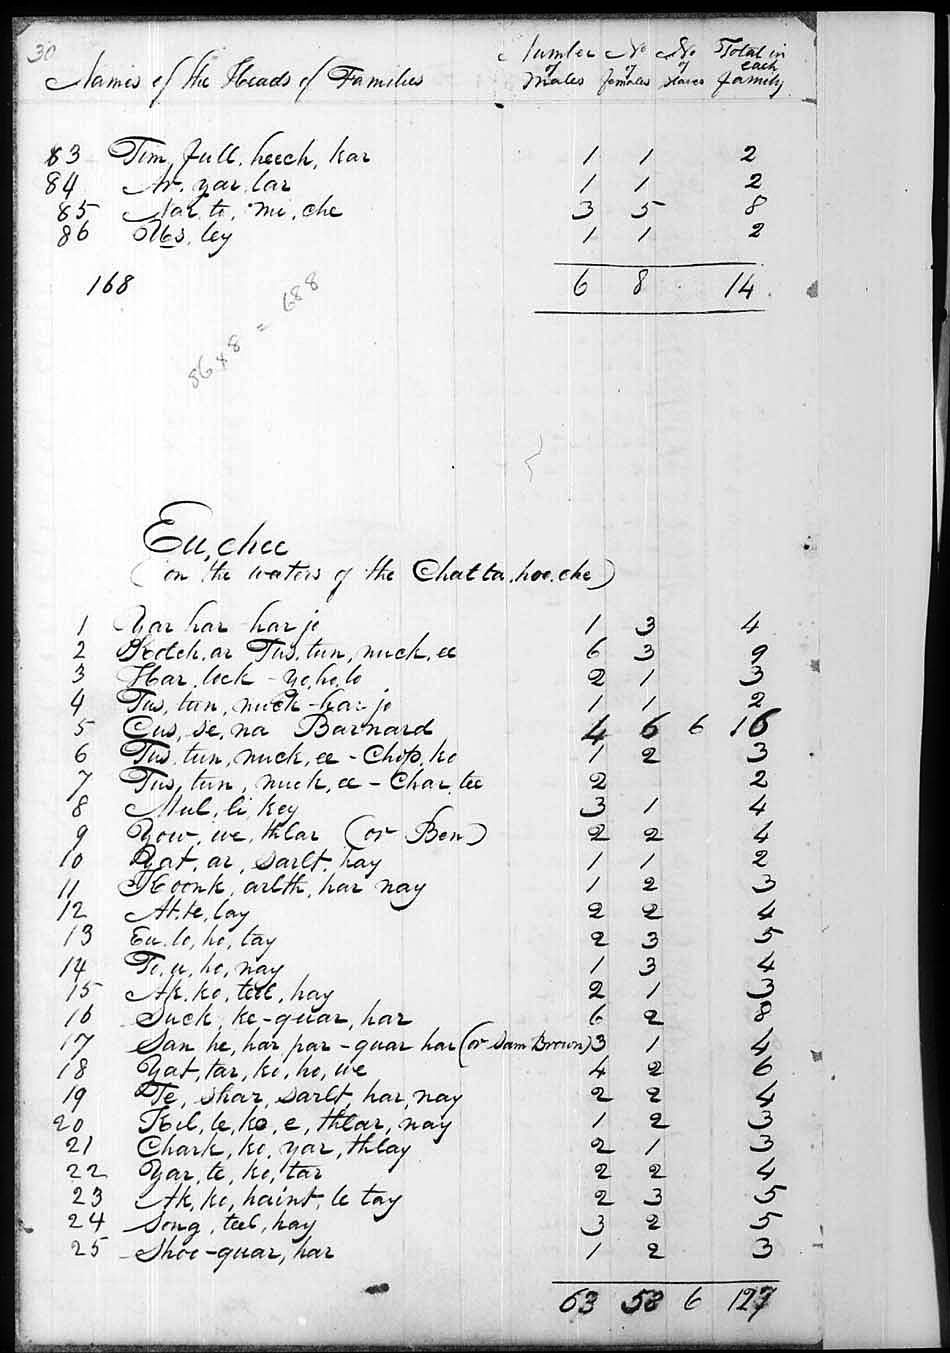 30
Names of the Heads of Families Number of Males No of females No of slaves Total in each family
83 Tim, full, heech, kar 1 1 2
84 Ar, yar, lar 1 1 2
85 Nar, to, mi, che 3 5 8
86 ley 1 1 2
168 6 8 14
86 x 8 = 688
Eu, chee
(on the waters of the Chatta, hoo, che)
1 Yar har har jo 1 3 4
2 Kotch, ar Tus, tun, nuck, ee 6 3 9
3 Har, lock - yo, ho, lo 2 1 3
4 Tus, tun, nuck - har jo 1 1 2
5 Cus, se, na Barnard 4 6 6 16
6 Tus, tun, nuck, ee - Chop, ko 1 2 3
7 Tus, tun, nuck, ee - Char, tee 2 2
8 Mul, li, key 3 1 4
9 Yow, we, thlar (or Ben) 2 2 4
10 Yat, ar, sarlt, hay 1 1 2
11 Koonk, arlth, har nay 1 2 3
12 At, te, lay 2 2 4
13 Eu, lo, ho, tay 2 3 5
14 To, u, ho, nay 1 3 4
15 Ak, ko, teel, hay 2 1 3
16 Suck, ke - quar, har 6 2 8
17 San he, har par - quar har (or Sam Brown) 3 1 4
18 Yat, tar, ko, ho, we 4 2 6
19 Te, shar, sarlt, har, nay 2 2 4
20 Kil, le, ko, e, thlar, nay 1 2 3
21 Chark, ko, yar, thlay 2 1 3
22 Yar, te, ko, tar 2 2 4
23 Ak, ko, haint, le tay 2 3 5
24 Song, teel, hay 3 2 5
25 Shoe - quar, har 1 2 3
63 58 6 127